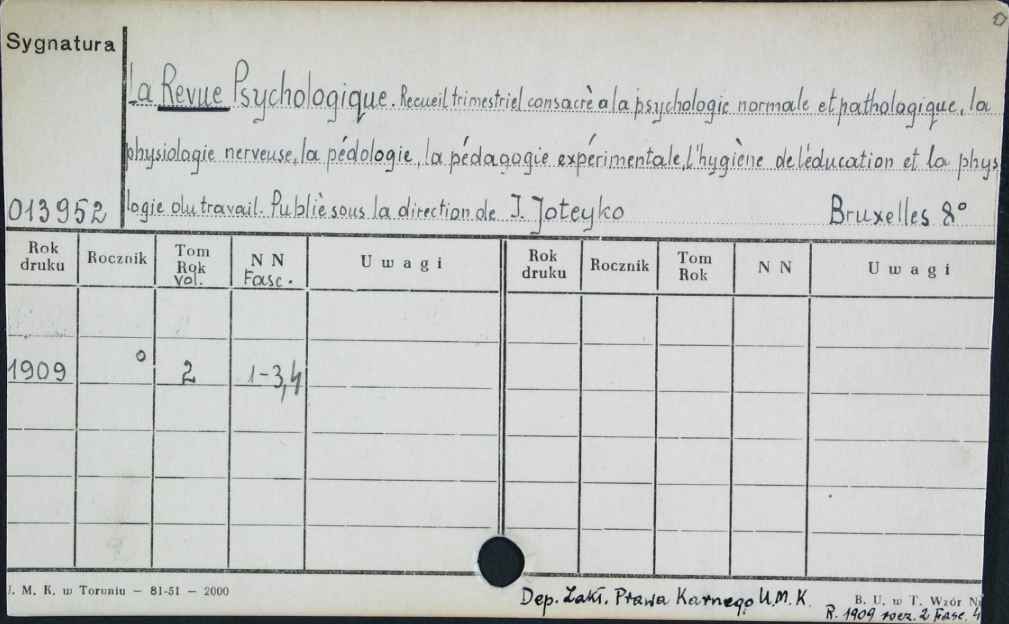 Sygnatura
La Revue Psychologique. Recueil trimestriel consacrè a la psychologie normale et pathologique, la
physiologie nerveuse, la pédologie, la pédagogie expérimentale, l'hygiène de l'éducation et la phys
logie du travail. Publiè sous la direction de J. Joteyko Bruxelles 8°
013952
Rok druku Rocznik Tom Rok vol. N N Fasc. Uwagi Rok druku Rocznik Tom Rok N N Uwagi
1909 2 1-3,4
J. M. K. w Toruniu — 81-51 — 2000
Dep. Zakł. Prawa Karnego U.M.K.
B. U. w T. Wzór N
R. 1909 rocz. 2 Fasc. 4